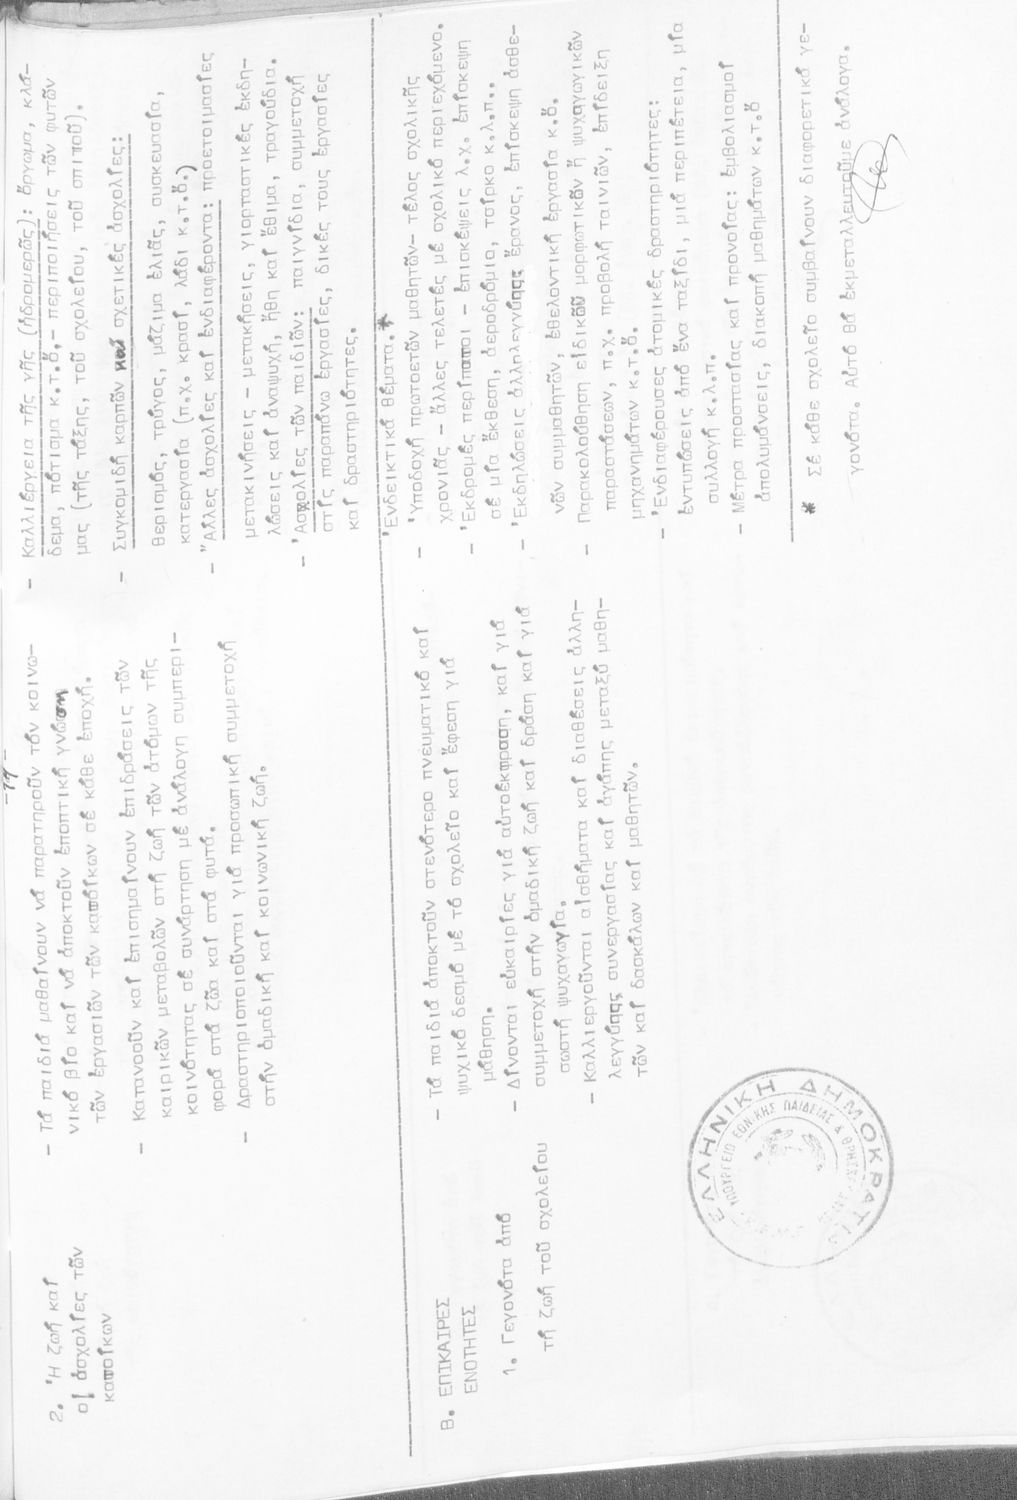 -14-
2. Ἡ ζωή καί
οἱ ἀσχολίες τῶν
κατοίκων
- Τά παιδιά μαθαίνουν νά παρατηροῦν τόν κοινω-
νικό βίο καί νά ἀποκτοῦν ἐποπτική γνώση
τῶν ἐργασιῶν τῶν κατοίκων σέ κάθε ἐποχή.
- Κατανοοῦν καί ἐπισημαίνουν ἐπιδράσεις τῶν
καιρικῶν μεταβολῶν στή ζωή τῶν ἀτόμων τῆς
κοινότητας σέ συνάρτηση μέ ἀνάλογη συμπερι-
φορά στά ζῶα καί στά φυτά.
- Δραστηριοποιοῦνται γιά προσωπική συμμετοχή
στήν ὁμαδική καί κοινωνική ζωή.
- Καλλιέργεια τῆς γῆς (ἁδρομερῶς): ὄργωμα, κλά-
δεμα, πότισμα κ.τ.ὅ,- περιποιήσεις τῶν φυτῶν
μας (τῆς τάξης, τοῦ σχολείου, τοῦ σπιτιοῦ).
- Συγκομιδή καρπῶν καί σχετικές ἀσχολίες:
θερισμός, τρύγος, μάζιμα ἐλιᾶς, συσκευασία,
κατεργασία (π.χ. κρασί, λάδι κ.τ.ὅ.)
- Ἄλλες ἀσχολίες καί ἐνδιαφέροντα: προετοιμασίες
μετακινήσεις - μετακήσεις, γιορταστικές ἐκδη-
λώσεις καί ἀναψυχή, ἤθη καί ἔθιμα, τραγούδια.
- Ἀσχολίες τῶν παιδιῶν: παιγνίδια, συμμετοχή
στίς παραπάνω ἐργασίες, δικές τους ἐργασίες
καί δραστηριότητες.
Β. ΕΠΙΚΑΙΡΕΣ
ΕΝΟΤΗΤΕΣ
1. Γεγονότα ἀπό
τή ζωή τοῦ σχολείου
- Τά παιδιά ἀποκτοῦν στενότερο πνευματικό καί
ψυχικό δεσμό μέ τό σχολεῖο καί ἔφεση γιά
μάθηση.
- Δίνονται εὐκαιρίες γιά αὐτοέκφραση, καί γιά
συμμετοχή στήν ὁμαδική ζωή καί δράση καί γιά
σωστή ψυχαγωγία.
- Καλλιεργοῦνται αἰσθήματα καί διαθέσεις ἀλλη-
λεγγύης συνεργασίας καί ἀγάπης μεταξύ μαθη-
τῶν καί δασκάλων καί μαθητῶν.
Ἐνδεικτικά θέματα.*
- Ὑποδοχή πρωτοετῶν μαθητῶν- τέλος σχολικῆς
χρονιᾶς - ἄλλες τελετές μέ σχολικό περιεχόμενο.
- Ἐκδρομές περίπατοι - ἐπισκέψεις λ.χ. ἐπίσκεψη
σέ μία ἔκθεση, ἀεροδρόμιο, τσίρκο κ.λ.π..
- Ἐκδηλώσεις ἀλληλεγγύης: ἔρανος, ἐπίσκεψη ἀσθε-
νῶν συμμαθητῶν, ἐθελοντική ἐργασία κ.ὅ.
- Παρακολούθηση εἰδικοῦ μορφωτικῶν ἤ ψυχαγωγικῶν
παραστάσεων, π.χ. προβολή ταινιῶν, ἐπίδειξη
μηχανημάτων κ.τ.ὅ.
- Ἐνδιαφέρουσες ἀτομικές δραστηριότητες:
ἐντυπώσεις ἀπό ἕνα ταξίδι, μιά περιπέτεια, μία
συλλογή κ.λ.π.
- Μέτρα προστασίας καί προνοίας: ἐμβολιασμοί
ἀπολυμάνσεις, διακοπή μαθημάτων κ.τ.ὅ
* Σέ κάθε σχολεῖο συμβαίνουν διαφορετικά γε-
γονότα. Αὐτό θά ἐκμεταλλευτοῦμε ἀνάλογα.
ΕΛΛΗΝΙΚΗ ΔΗΜΟΚΡΑΤΙΑ
ΥΠΟΥΡΓΕΙΟ ΕΘΝΙΚΗΣ ΠΑΙΔΕΙΑΣ &